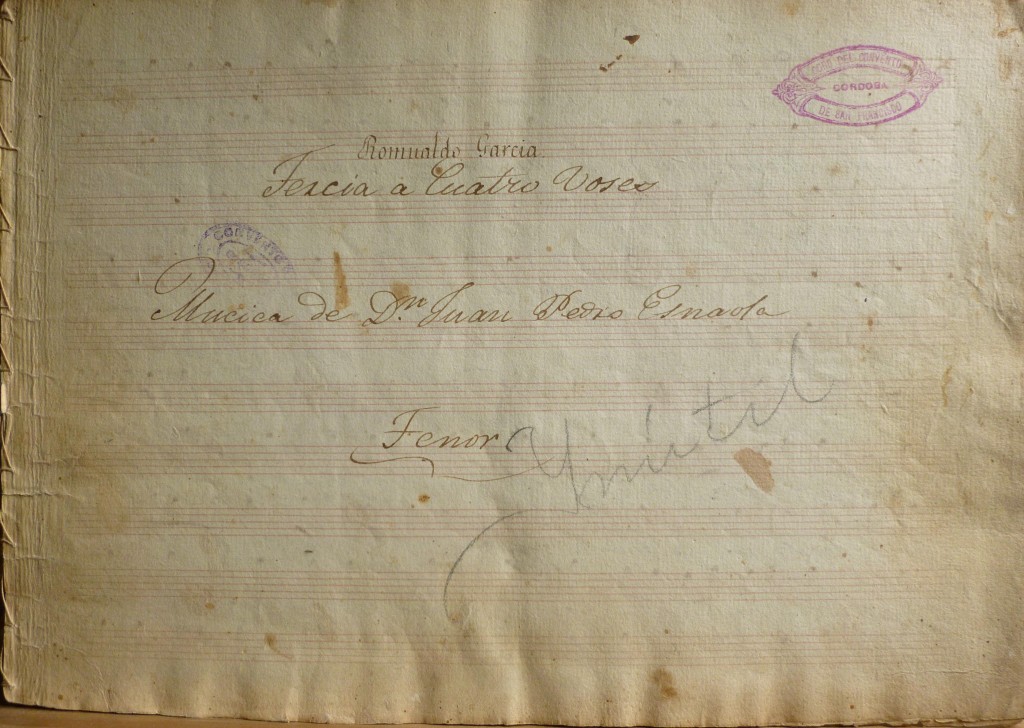 DEL CONVENTO
CORDOBA
DE SAN FRANCISCO
Romualdo Garcia
Tercia a Cuatro Voses
CONVENTO
Mucica de Dn. Juan Pedro Esnaola
Tenor
Ynútil